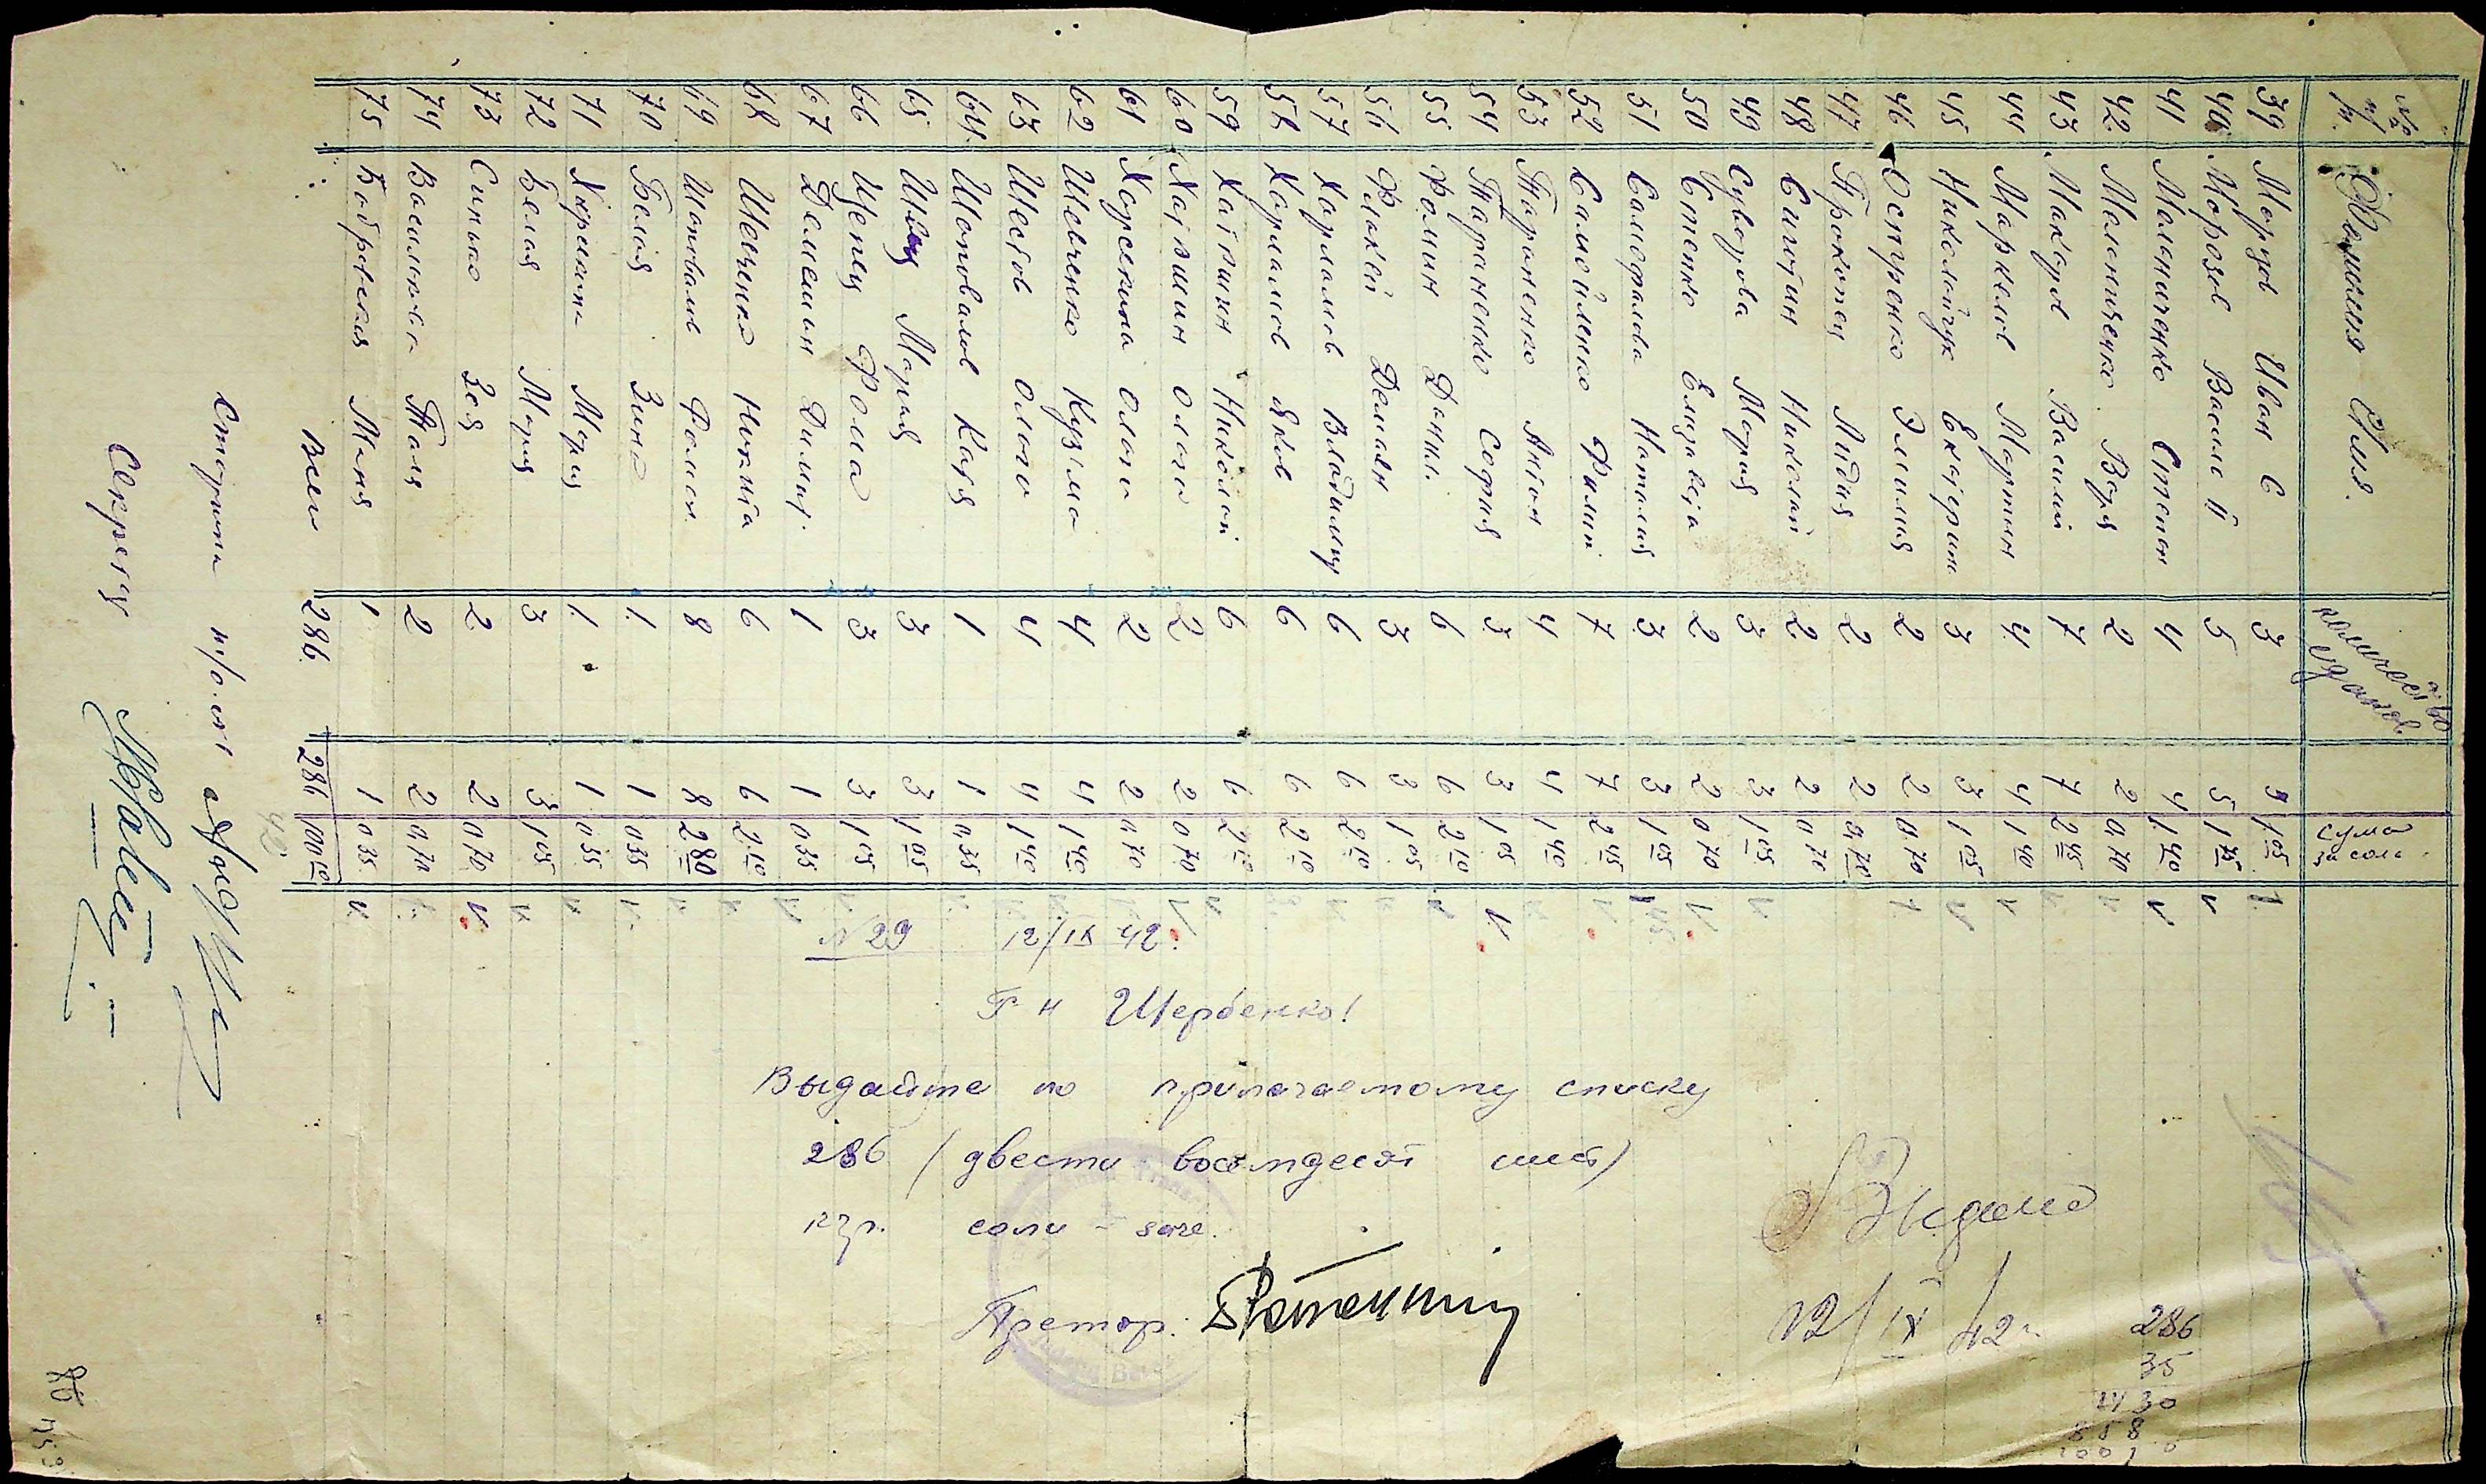 № п/п. Фамилия Имя. количество едоков. сума за соль
39 Морозов Иван С 3 3 1.05
40 Морозов Василь И 5 5 1 75
41 Мельниченко Степан 4 4 1.40
42 Мельниченко Варя 2 2 0.70
43 Макаров Василий 7 7 2 45
44 Маркелов Мартин 4 4 1 40
45 Николайчук Екатерин 3 3 1 05
46 Остуренко Эмилия 2 2 0.70
47 Прокопец Лидия 2 2 0.70
48 Сиготин Николай 2 2 0.70
49 Суворова Мария 3 3 1 05
50 Стенко Елизавета 2 2 0 70
51 Самофалова Наталия 3 3 1 05
52 Самойленко Филип 7 7 2 45
53 Тароненко Антон 4 4 1 40
54 Тараненко София 3 3 1 05
55 Фомин Данил. 6 6 2 10
56 Филакей Демьян 3 3 1 05
57 Харламов Владимир 6 6 2 10
58 Харламов Яков 6 6 2 10
59 Хатюшин Николай 6 6 2 10
60 Хатюшин Ольга 2 2 0 70
61 Хорескина Ольга 2 2 0.70
62 Шевченко Кузьма 4 4 1 40
63 Шестов Ольга 4 4 1 40
64 Шаповалов Катя 1 1 0.35
65 Швец Мария 3 3 1 05
66 Щепец Фома 3 3 1 05
67 Демешин Димит. 1 1 0 35
68 Шевченко Никита 6 6 2.10
69 Шаповалов Фомич 8 8 2 80
70 Белая Зина 1. 1 0 35
71 Хорескина Мария 1. 1 0 35
72 Белая Мария 3 3 1 05
73 Синько Зоя 2 2 0 70
74 Василькова Таля 2 2 0.70
75 Бобровская Маня 1 1 0 35
Всего 286 286 100 10
Староста
Секретар
N 29 12/IX 42.
Г-н Щербенко!
Выдайте по прилагаемому списку
286 (двести восемдесят шесть)
кгр. соли
Претор:
Выдано
12/IX 42 г.
286
35
1430
858
1001 0